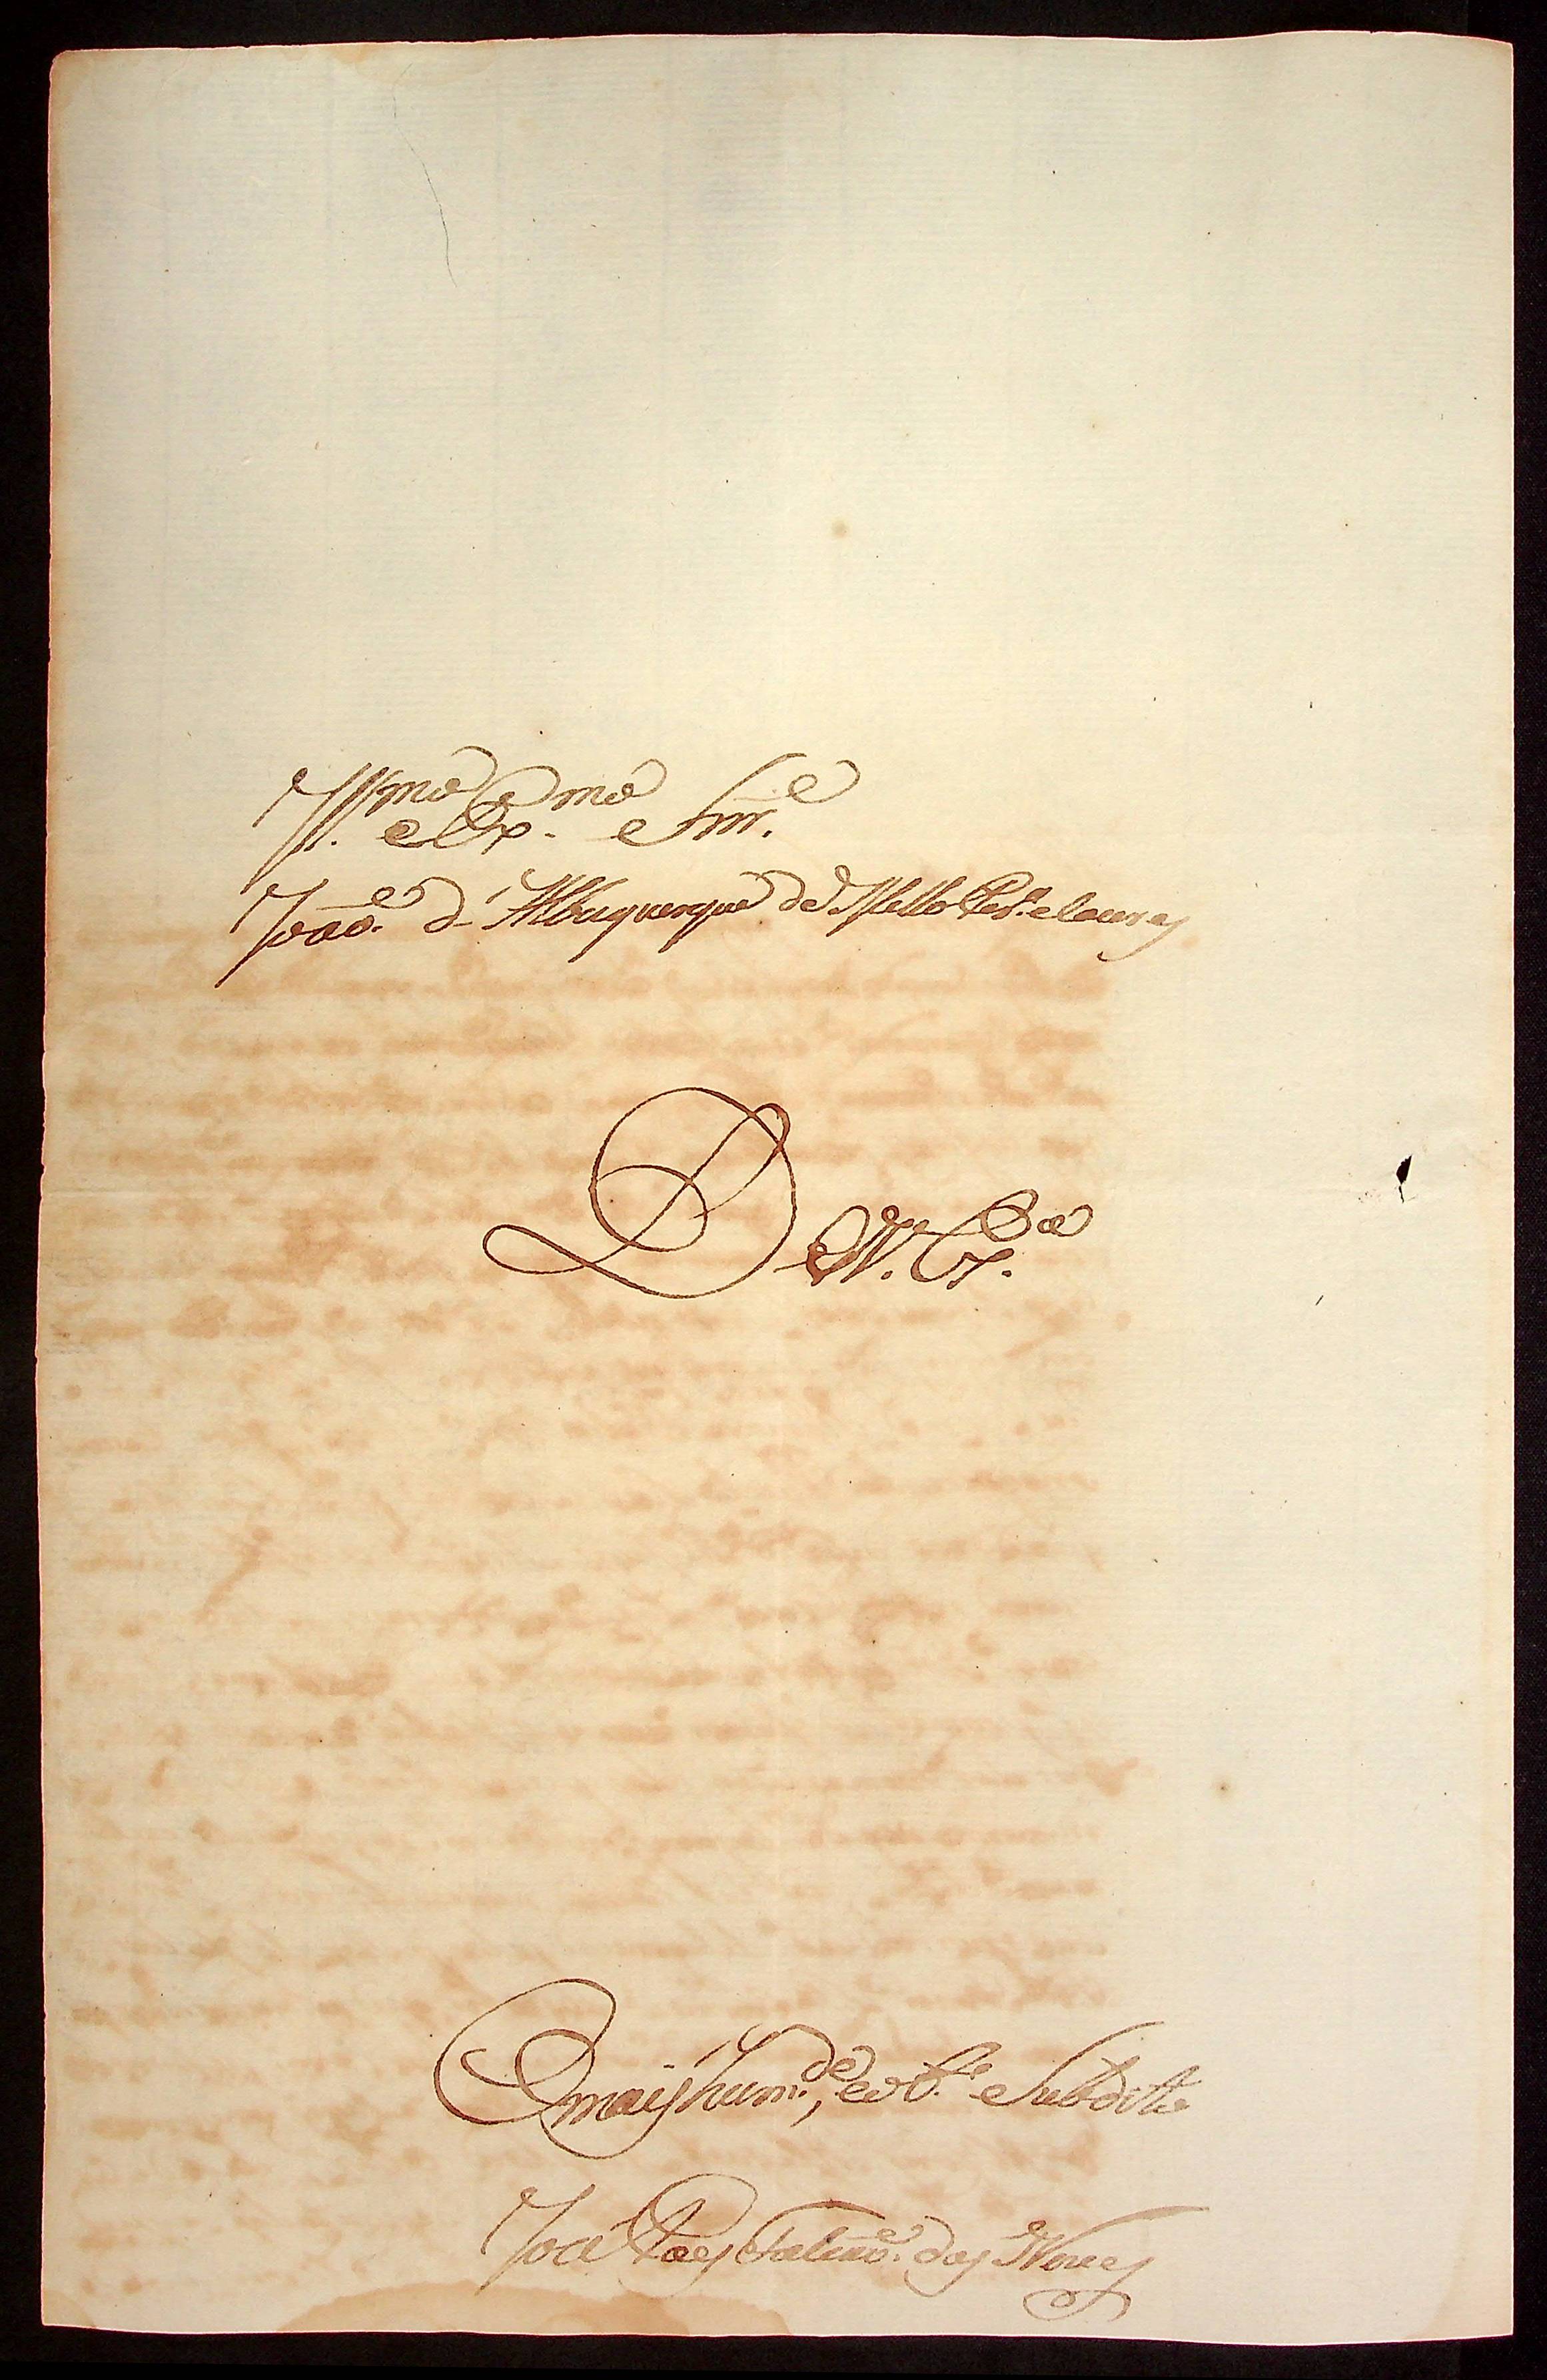 Ill.mo e Ex.mo Snr.
João d'Albuquerque de Mello Per.a e Caceres
De V. Ex.a
O mais hum.de, e ob.e Subdito
Joa Paes Falcaõ das Neves